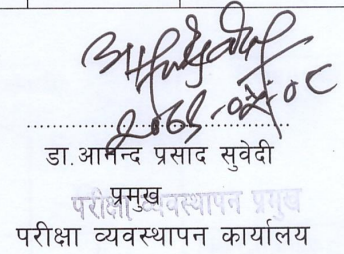 डा.आनन्द प्रसाद सुवेदी
प्रमुख
परीक्षा व्यवस्थापन प्रमुख
परीक्षा व्यवस्थापन कार्यालय